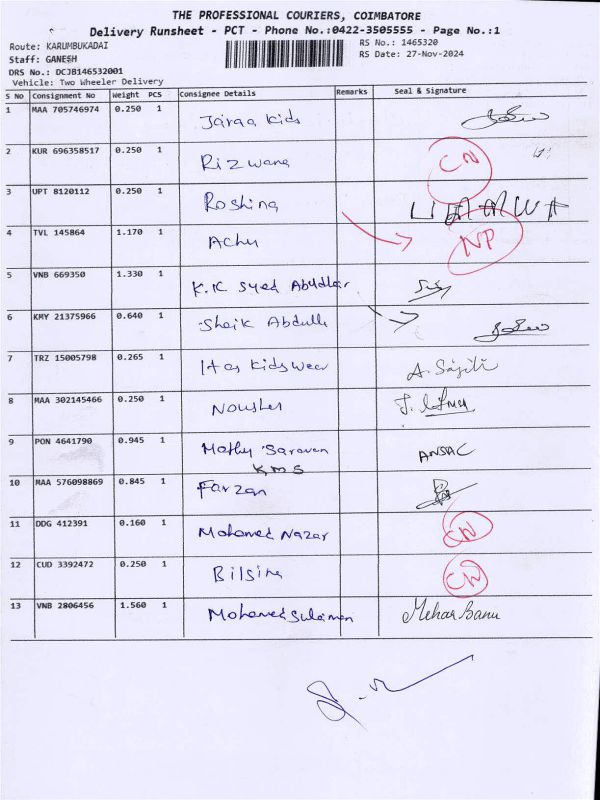 THE PROFESSIONAL COURIERS, COIMBATORE
Delivery Runsheet - PCT - Phone No.:0422-3505555 - Page No.:1
Route: KARUMBUKADAI
RS No.: 1465320
Staff: GANESH
RS Date: 27-Nov-2024
DRS No.: DCJB146532001
Vehicle: Two Wheeler Delivery
S No Consignment No Weight PCS Consignee Details Remarks Seal & Signature
1 MAA 705746974 0.250 1 Jaraa Kids
2 KUR 696358517 0.250 1 Rizwana CN
3 UPT 8120112 0.250 1 Roshina
4 TVL 145864 1.170 1 Achu NP
5 VNB 669350 1.330 1 K.K Syed
6 KMY 21375966 0.640 1 Sheik Abdulla
7 TRZ 15005798 0.265 1 Kids wear A. Sajili
8 MAA 302145466 0.250 1
9 PON 4641790 0.945 1 Mathy Saravan ANSAC
KMS
10 MAA 576098869 0.845 1 Farzan
11 DDG 412391 0.160 1 Mohamed Nazar CN
12 CUD 3392472 0.250 1 Bilsina CN
13 VNB 2806456 1.560 1 Mohamed Sulaiman Mehar Banu